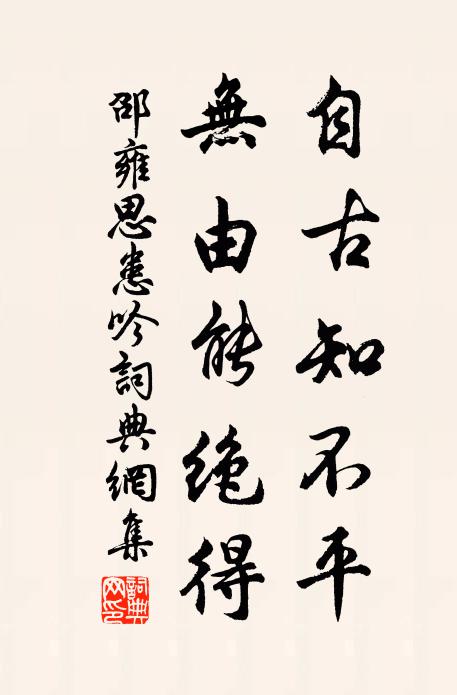 自古知不平
無由能絶得
邵雍思患吟詞典網集
詞典網印